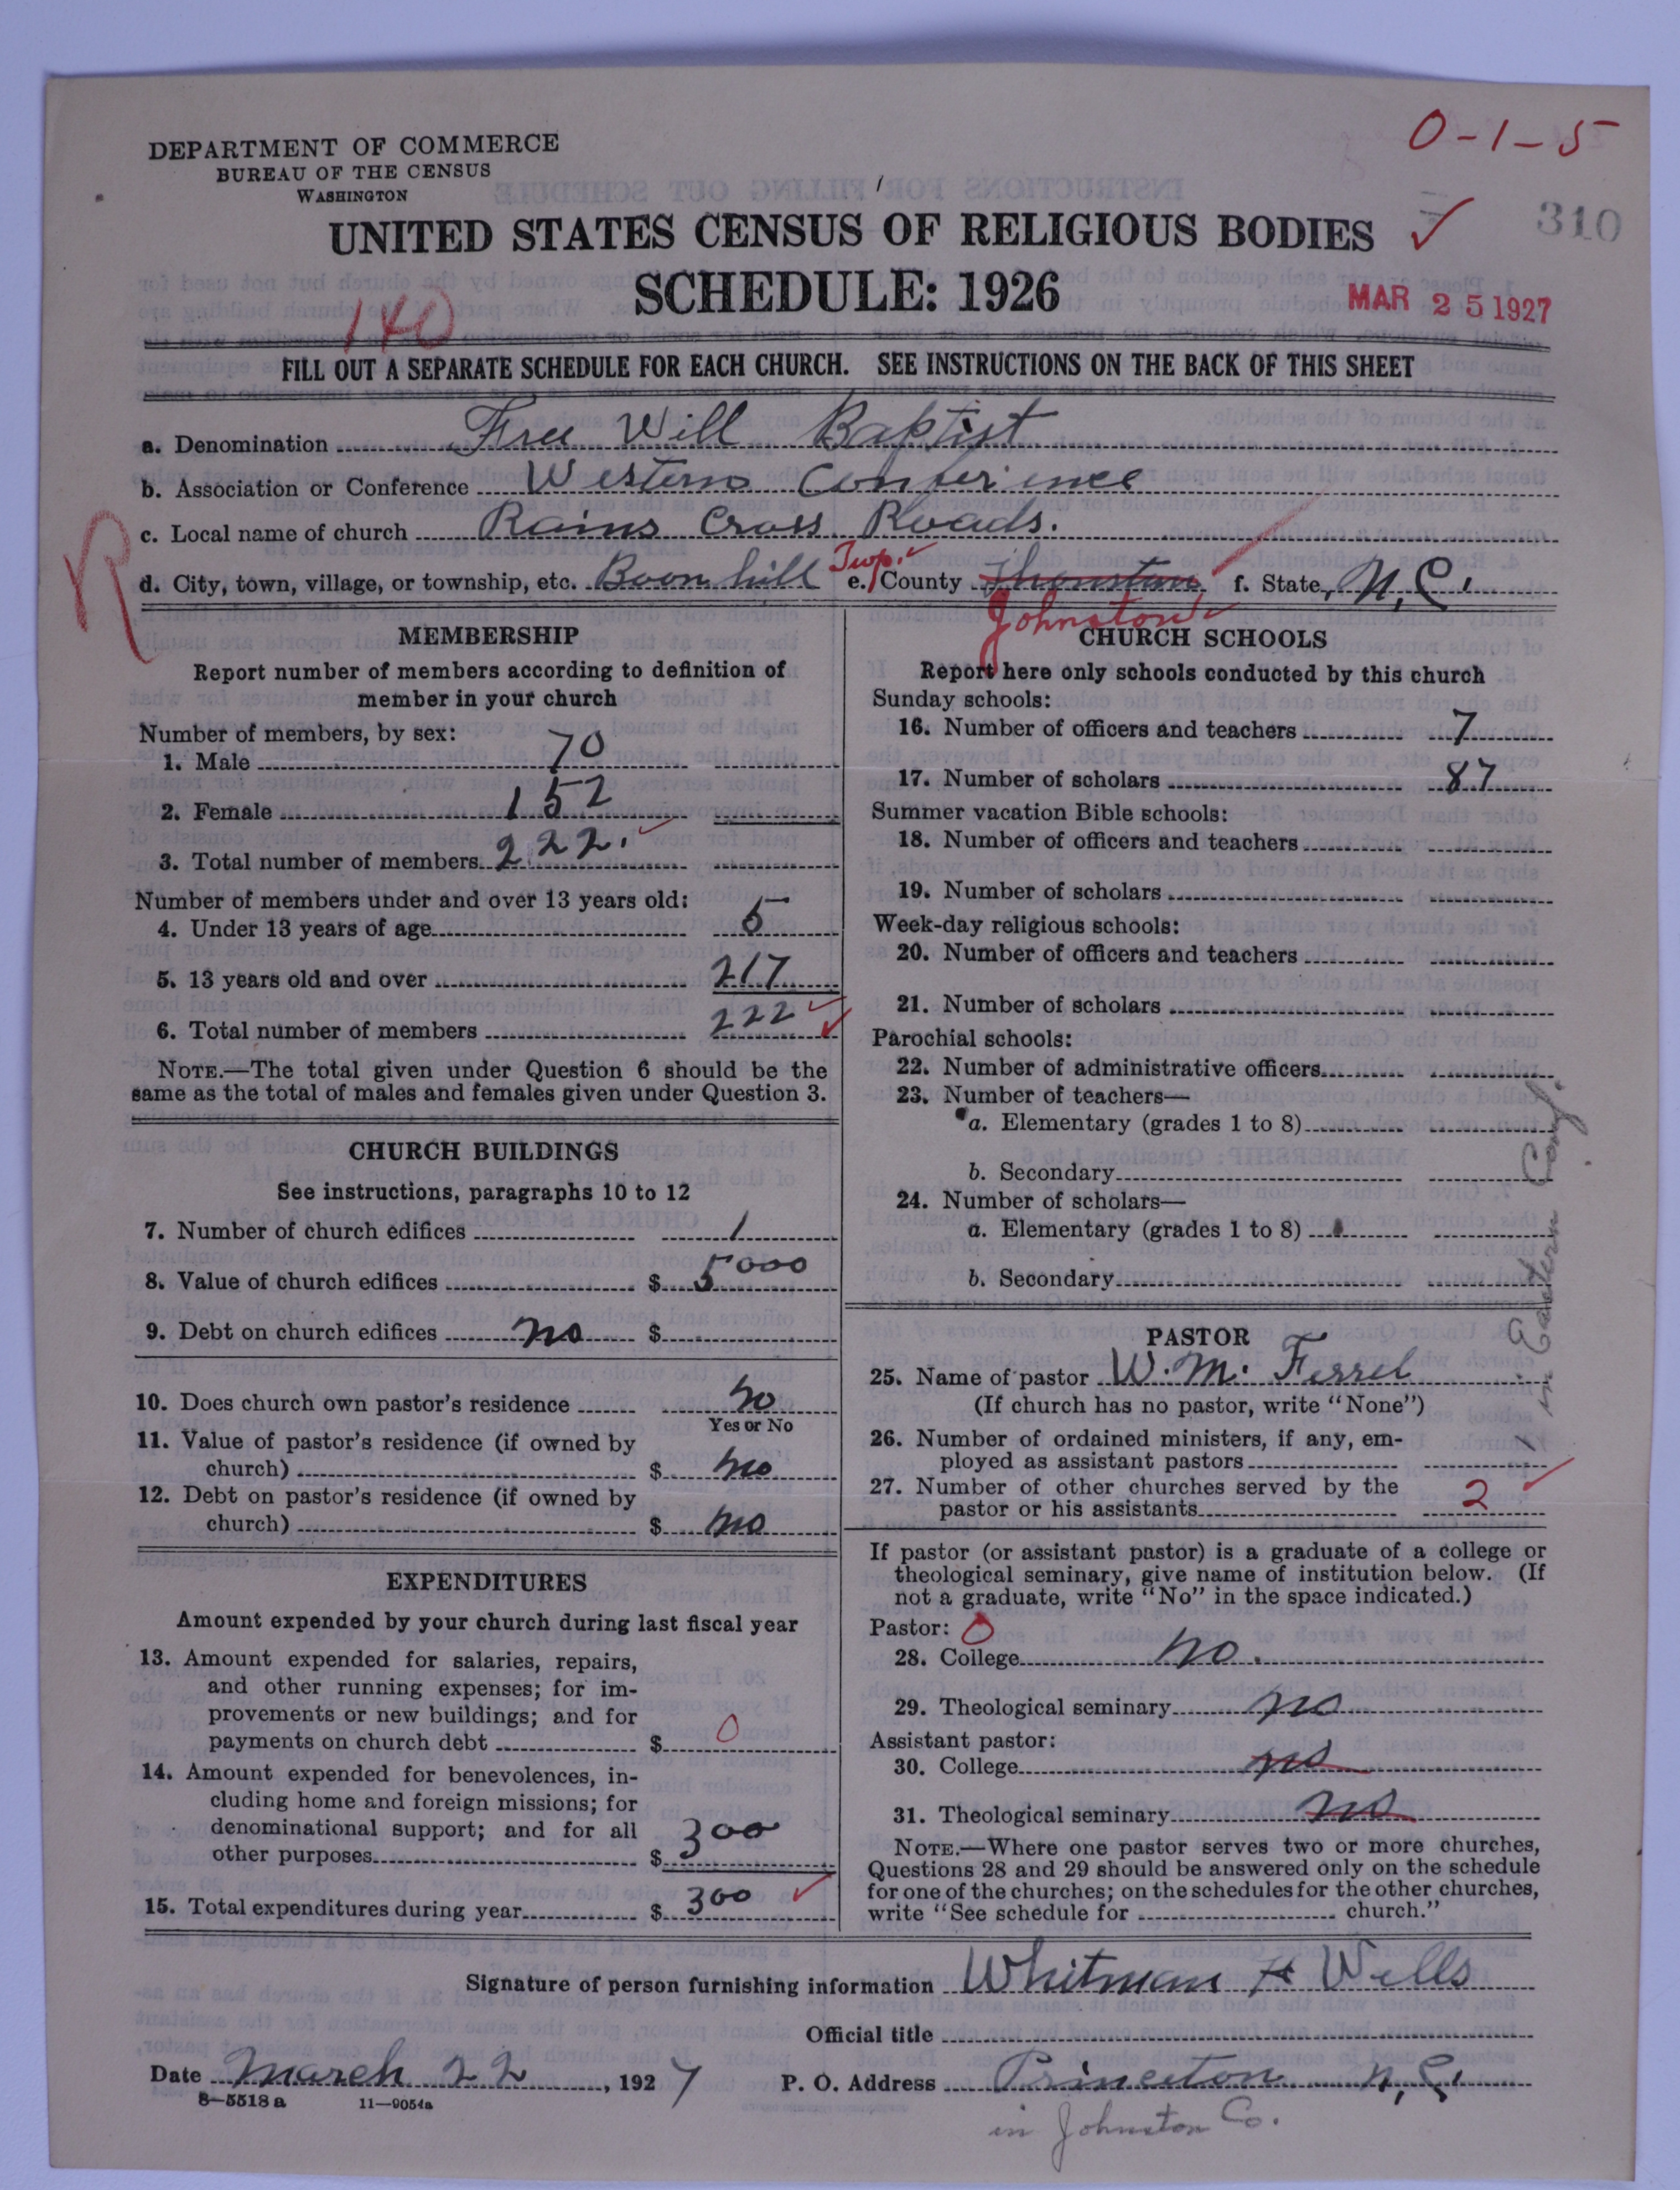 0-1-5
DEPARTMENT OF COMMERCE
BUREAU OF THE CENSUS
WASHINGTON
310
UNITED STATES CENSUS OF RELIGIOUS BODIES ✓
SCHEDULE: 1926
MAR 25 1927
140
FILL OUT A SEPARATE SCHEDULE FOR EACH CHURCH. SEE INSTRUCTIONS ON THE BACK OF THIS SHEET
a. Denomination Free Will Baptist
b. Association or Conference Western Conference
c. Local name of church Rains Cross Roads.
R
d. City, town, village, or township, etc. Boon hill Twp. e. County Jhonston f. State, N.C.
Johnston
MEMBERSHIP
Report number of members according to definition of
member in your church
Number of members, by sex:
1. Male 70
2. Female 152
3. Total number of members 222.
Number of members under and over 13 years old:
4. Under 13 years of age 5
5. 13 years old and over 217
6. Total number of members 222
NOTE.—The total given under Question 6 should be the
same as the total of males and females given under Question 3.
CHURCH BUILDINGS
See instructions, paragraphs 10 to 12
7. Number of church edifices 1
8. Value of church edifices $ 5000
9. Debt on church edifices no $
10. Does church own pastor's residence no
Yes or No
11. Value of pastor's residence (if owned by
church) $ no
12. Debt on pastor's residence (if owned by
church) $ no
EXPENDITURES
Amount expended by your church during last fiscal year
13. Amount expended for salaries, repairs,
and other running expenses; for im-
provements or new buildings; and for
payments on church debt $ 0
14. Amount expended for benevolences, in-
cluding home and foreign missions; for
denominational support; and for all
other purposes $ 300
15. Total expenditures during year $ 300
CHURCH SCHOOLS
Report here only schools conducted by this church
Sunday schools:
16. Number of officers and teachers 7
17. Number of scholars 87
Summer vacation Bible schools:
18. Number of officers and teachers
19. Number of scholars
Week-day religious schools:
20. Number of officers and teachers
21. Number of scholars
Parochial schools:
22. Number of administrative officers
23. Number of teachers—
a. Elementary (grades 1 to 8)
b. Secondary
24. Number of scholars—
a. Elementary (grades 1 to 8)
b. Secondary
in Eastern Conf.
PASTOR
25. Name of pastor W. M. Ferrel
(If church has no pastor, write "None")
26. Number of ordained ministers, if any, em-
ployed as assistant pastors
27. Number of other churches served by the
pastor or his assistants 2
If pastor (or assistant pastor) is a graduate of a college or
theological seminary, give name of institution below. (If
not a graduate, write "No" in the space indicated.)
Pastor: 0
28. College no.
29. Theological seminary no
Assistant pastor:
30. College no
31. Theological seminary no
NOTE.—Where one pastor serves two or more churches,
Questions 28 and 29 should be answered only on the schedule
for one of the churches; on the schedules for the other churches,
write "See schedule for church."
Signature of person furnishing information Whitman H Wells
Official title
Date March 22, 1927 P. O. Address Princeton N.C.
8-5518a 11-9054a
in Johnston Co.